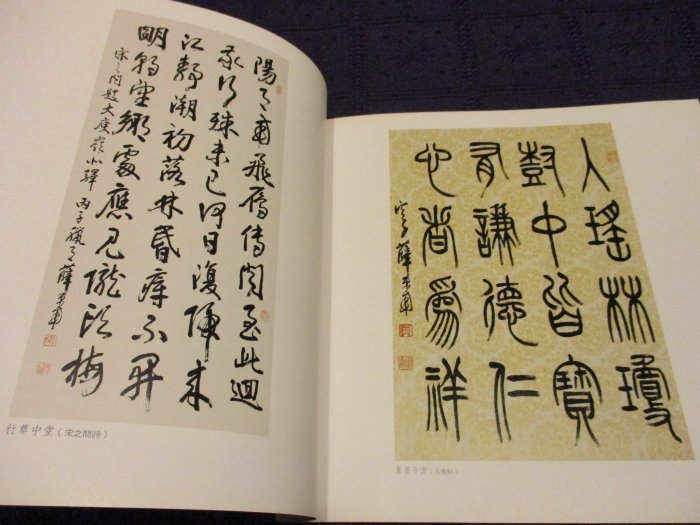 陽月南飛雁傳聞至此迴
我行殊未已何日復歸來
江靜潮初落林昏瘴不開
明朝望鄉處應見隴頭梅
宋之問題大庾嶺北驛 丙子 薛平南
行草中堂（宋之問詩）
入瑤林瓊
樹中皆寶
有謙德仁
心者爲祥
薛平南
篆書斗方（入瑤林）